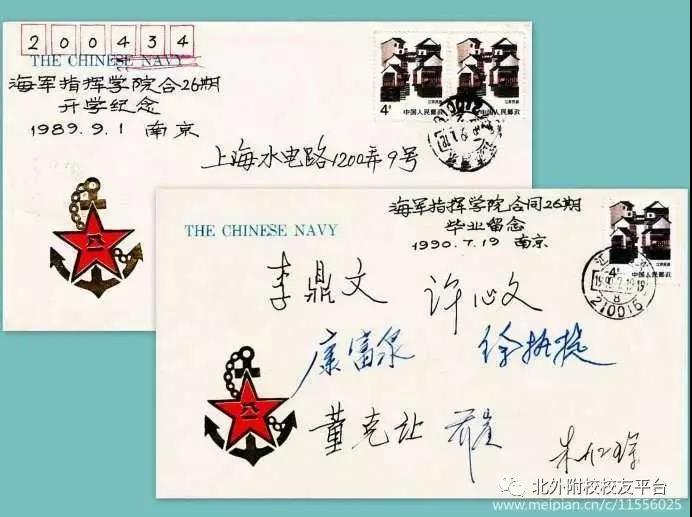 200434
THE CHINESE NAVY
海军指挥学院合26期
开学纪念
1989.9.1 南京
上海水电路1200弄9号
4分
中国人民邮政
中国人民邮政
THE CHINESE NAVY
海军指挥学院合同26期
毕业留念
1990.7.19 南京
4分
中国人民邮政
210016
李鼎文 许心文
康富泉 徐执提
董克让
北外附校校友平台
www.meipian.cn/c/11556025